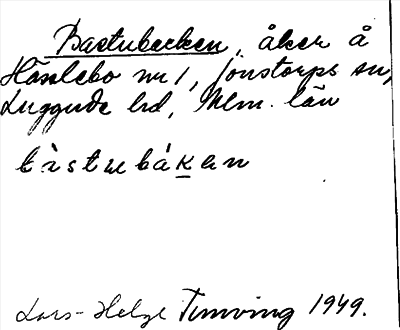 Bastubacken, åker å
Hässlebo nr 1, Jonstorps sn,
Luggude hd, Mlm. län
bàstubákan
Lars-Helge Turnving 1949.